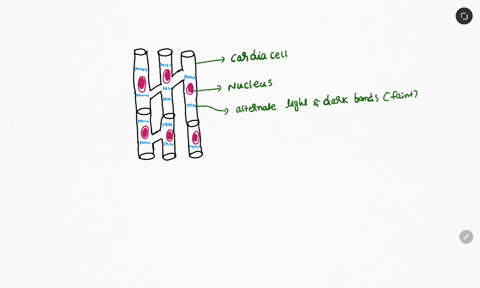 cardia cell
Nucleus
alternate light & dark bands (faint)